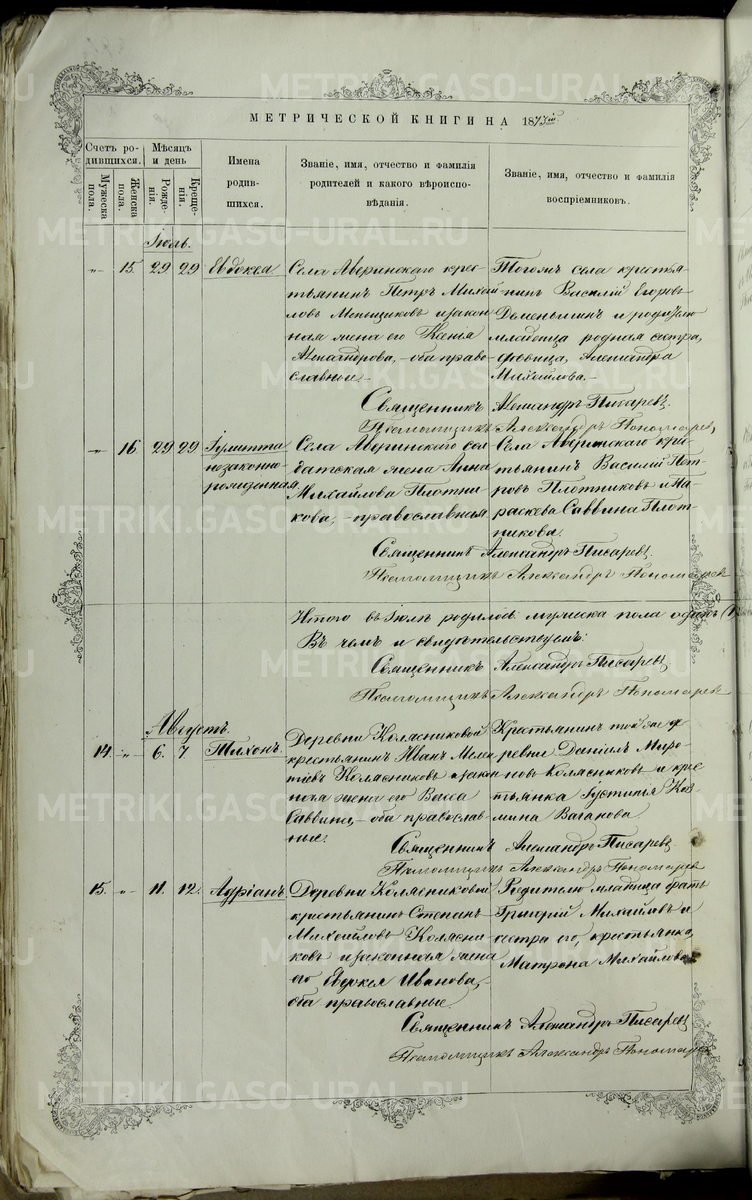 МЕТРИЧЕСКОЙ КНИГИ НА 1873й
Счетъ ро-
дившихся.
Мѣсяцъ
и день
Мужеска
пола.
Женска
пола.
Рожде-
нія.
Креще-
нія.
Имена
родив-
шихся.
Званіе, имя, отчество и фамилія
родителей и какого вѣроиспо-
вѣданія.
Званіе, имя, отчество и фамилія
воспріемниковъ.
Іюль.
„ 15. 29 29 Евдокея
Села Аверинскаго крес-
тьянинъ Петръ Михай
ловъ Меньщиковъ и закон
ная жена его Ксенья
Александрова, – оба право-
славные. –
Тогожъ села крестья-
нинъ Василій Егоровъ
Деменьшинъ и родителю
младенца родная сестра,
дѣвица, Александра
Михайлова. –
Священникъ Александръ Писаревъ.
Псаломщикъ Александръ Пономарев
„ 16. 29 29 Іулитта
незаконно-
рожденная.
Села Аверинскаго сол-
датская жена Анна
Михайлова Плотни-
кова, – православная
Села Аверинскаго кре-
стьянинъ Василій Пет-
ровъ Плотниковъ и Па-
раскева Саввина Плот-
никова.
Священникъ Александръ Писаревъ
Псаломщикъ Александръ Пономарев
Итого въ Іюлѣ родилось: мужеска пола одинъ (1)
Въ чемъ и свидѣтельствуемъ:
Священникъ Александръ Писаревъ
Псаломщикъ Александръ Пономарев
Августъ.
14. „ 6. 7 Тихонъ.
Деревни Колясниковой
крестьянинъ Иванъ
Колясниковъ и закон
ная жена его Васса
Саввина, – оба православ-
ные.
Крестьянинъ той же де
ревни Даніилъ Миро-
новъ Колясниковъ и кре
стьянка Іустинья Коз-
мина Ваганова.
Священникъ Александръ Писаревъ
Псаломщикъ Александръ Пономарев
15. „ 11. 12. Адріанъ.
Деревни Колясниковой
крестьянинъ Степанъ
Михайловъ Колясни-
ковъ и законная жена
его Евдокея Иванова, –
оба православные.
Родителю младенца братъ
Григорій Михайловъ и
сестра его, крестьянка,
Матрона Михайлова.
Священникъ Александръ Писаревъ
Псаломщикъ Александръ Пономарев
METRIKI.GASO-URAL.RU